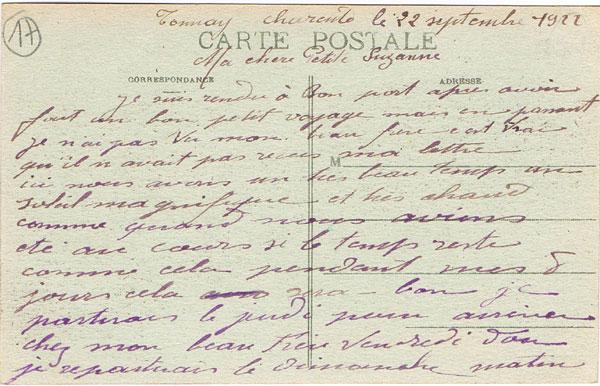 17
Tonnay Charente le 22 septembre 1922
CARTE POSTALE
Ma chere Petite Suzanne
CORRESPONDANCE
ADRESSE
je suis rendu à bon port apres avoir
fait un bon petit voyage mais en passant
je n'ai pas vu mon beau frere c'est vrai
qu'il n'avait pas recus ma lettre
M
ici nous avons un tres beau temps un
soleil magnifique et tres chaud
comme quand nous avions
eté au cours si le temps reste
comme cela pendant mes 8
jours cela sera bon je
partirais le jeudi pour arriver
chez mon beau frere vendredi d'ou
je repartirais le dimanche matin